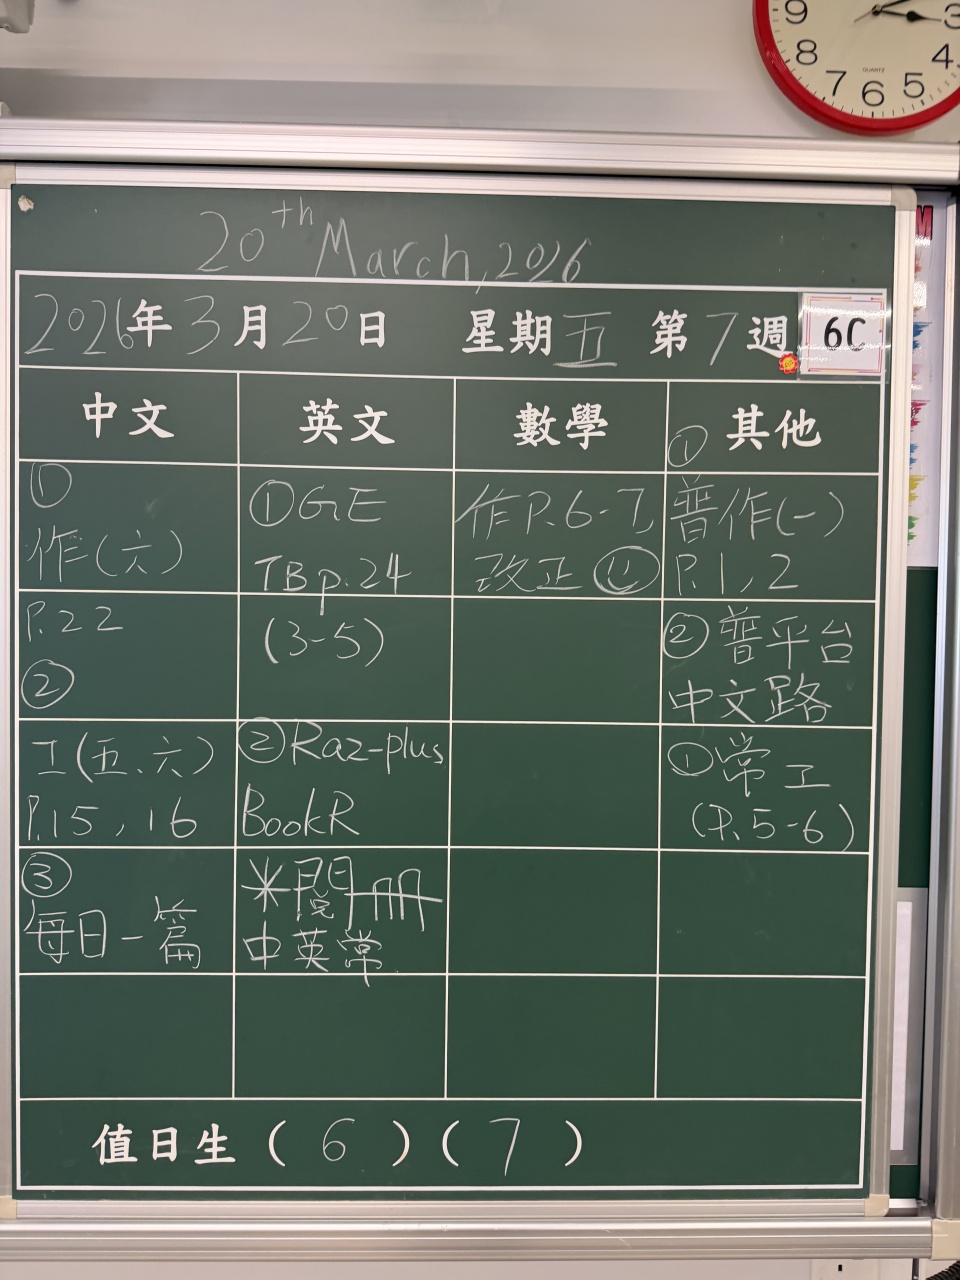 9
8
7
6
5
4
3
QUARTZ
20th March, 2026
2026年3月20日 星期五 第7週 6C
中文 英文 數學 其他
①
作(六)
P.22
②
工(五、六)
P.15, 16
③
每日一篇
①GE
TB p.24
(3-5)
②Raz-plus
BookR
中英常
作P.6-7
改正
①
普作(一)
P.1, 2
②普平台
中文路
①常工
(P.5-6)
值日生 ( 6 ) ( 7 )